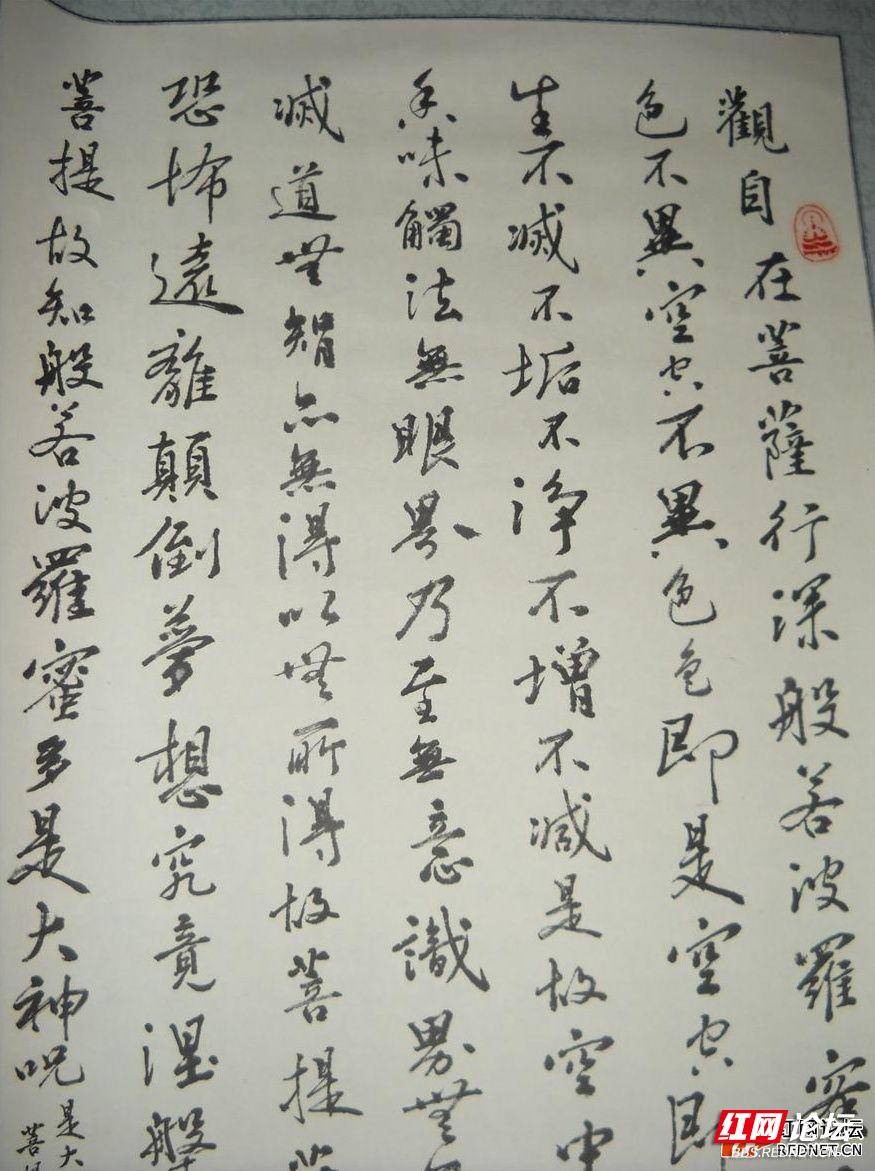 觀自在菩薩行深般若波羅蜜
色不異空空不異色色即是空空即
生不滅不垢不淨不增不減是故空中
香味觸法無眼界乃至無意識界無
滅道無智亦無得以無所得故菩提
恐怖遠離顛倒夢想究竟涅槃
菩提故知般若波羅蜜多是大神咒是大
菩
红网论坛
BBS.REDNET.CN